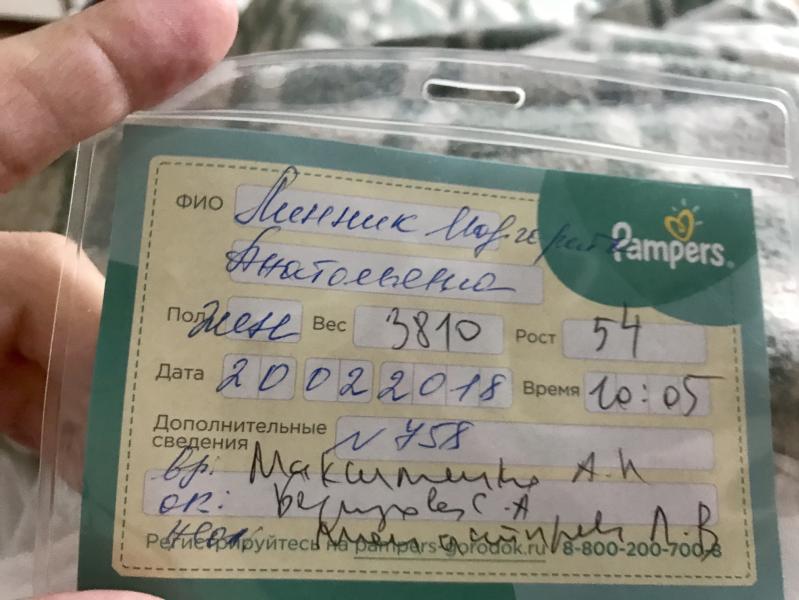 ФИО Линник Маргарита Pampers
Анатольевна
Пол жен Вес 3810 Рост 54
Дата 20 02 2018 Время 10:05
Дополнительные сведения N 758
вр: Максименко А.Н
ак: С.А
Л.В
Регистрируйтесь на pampers-gorodok.ru 8-800-200-700-8